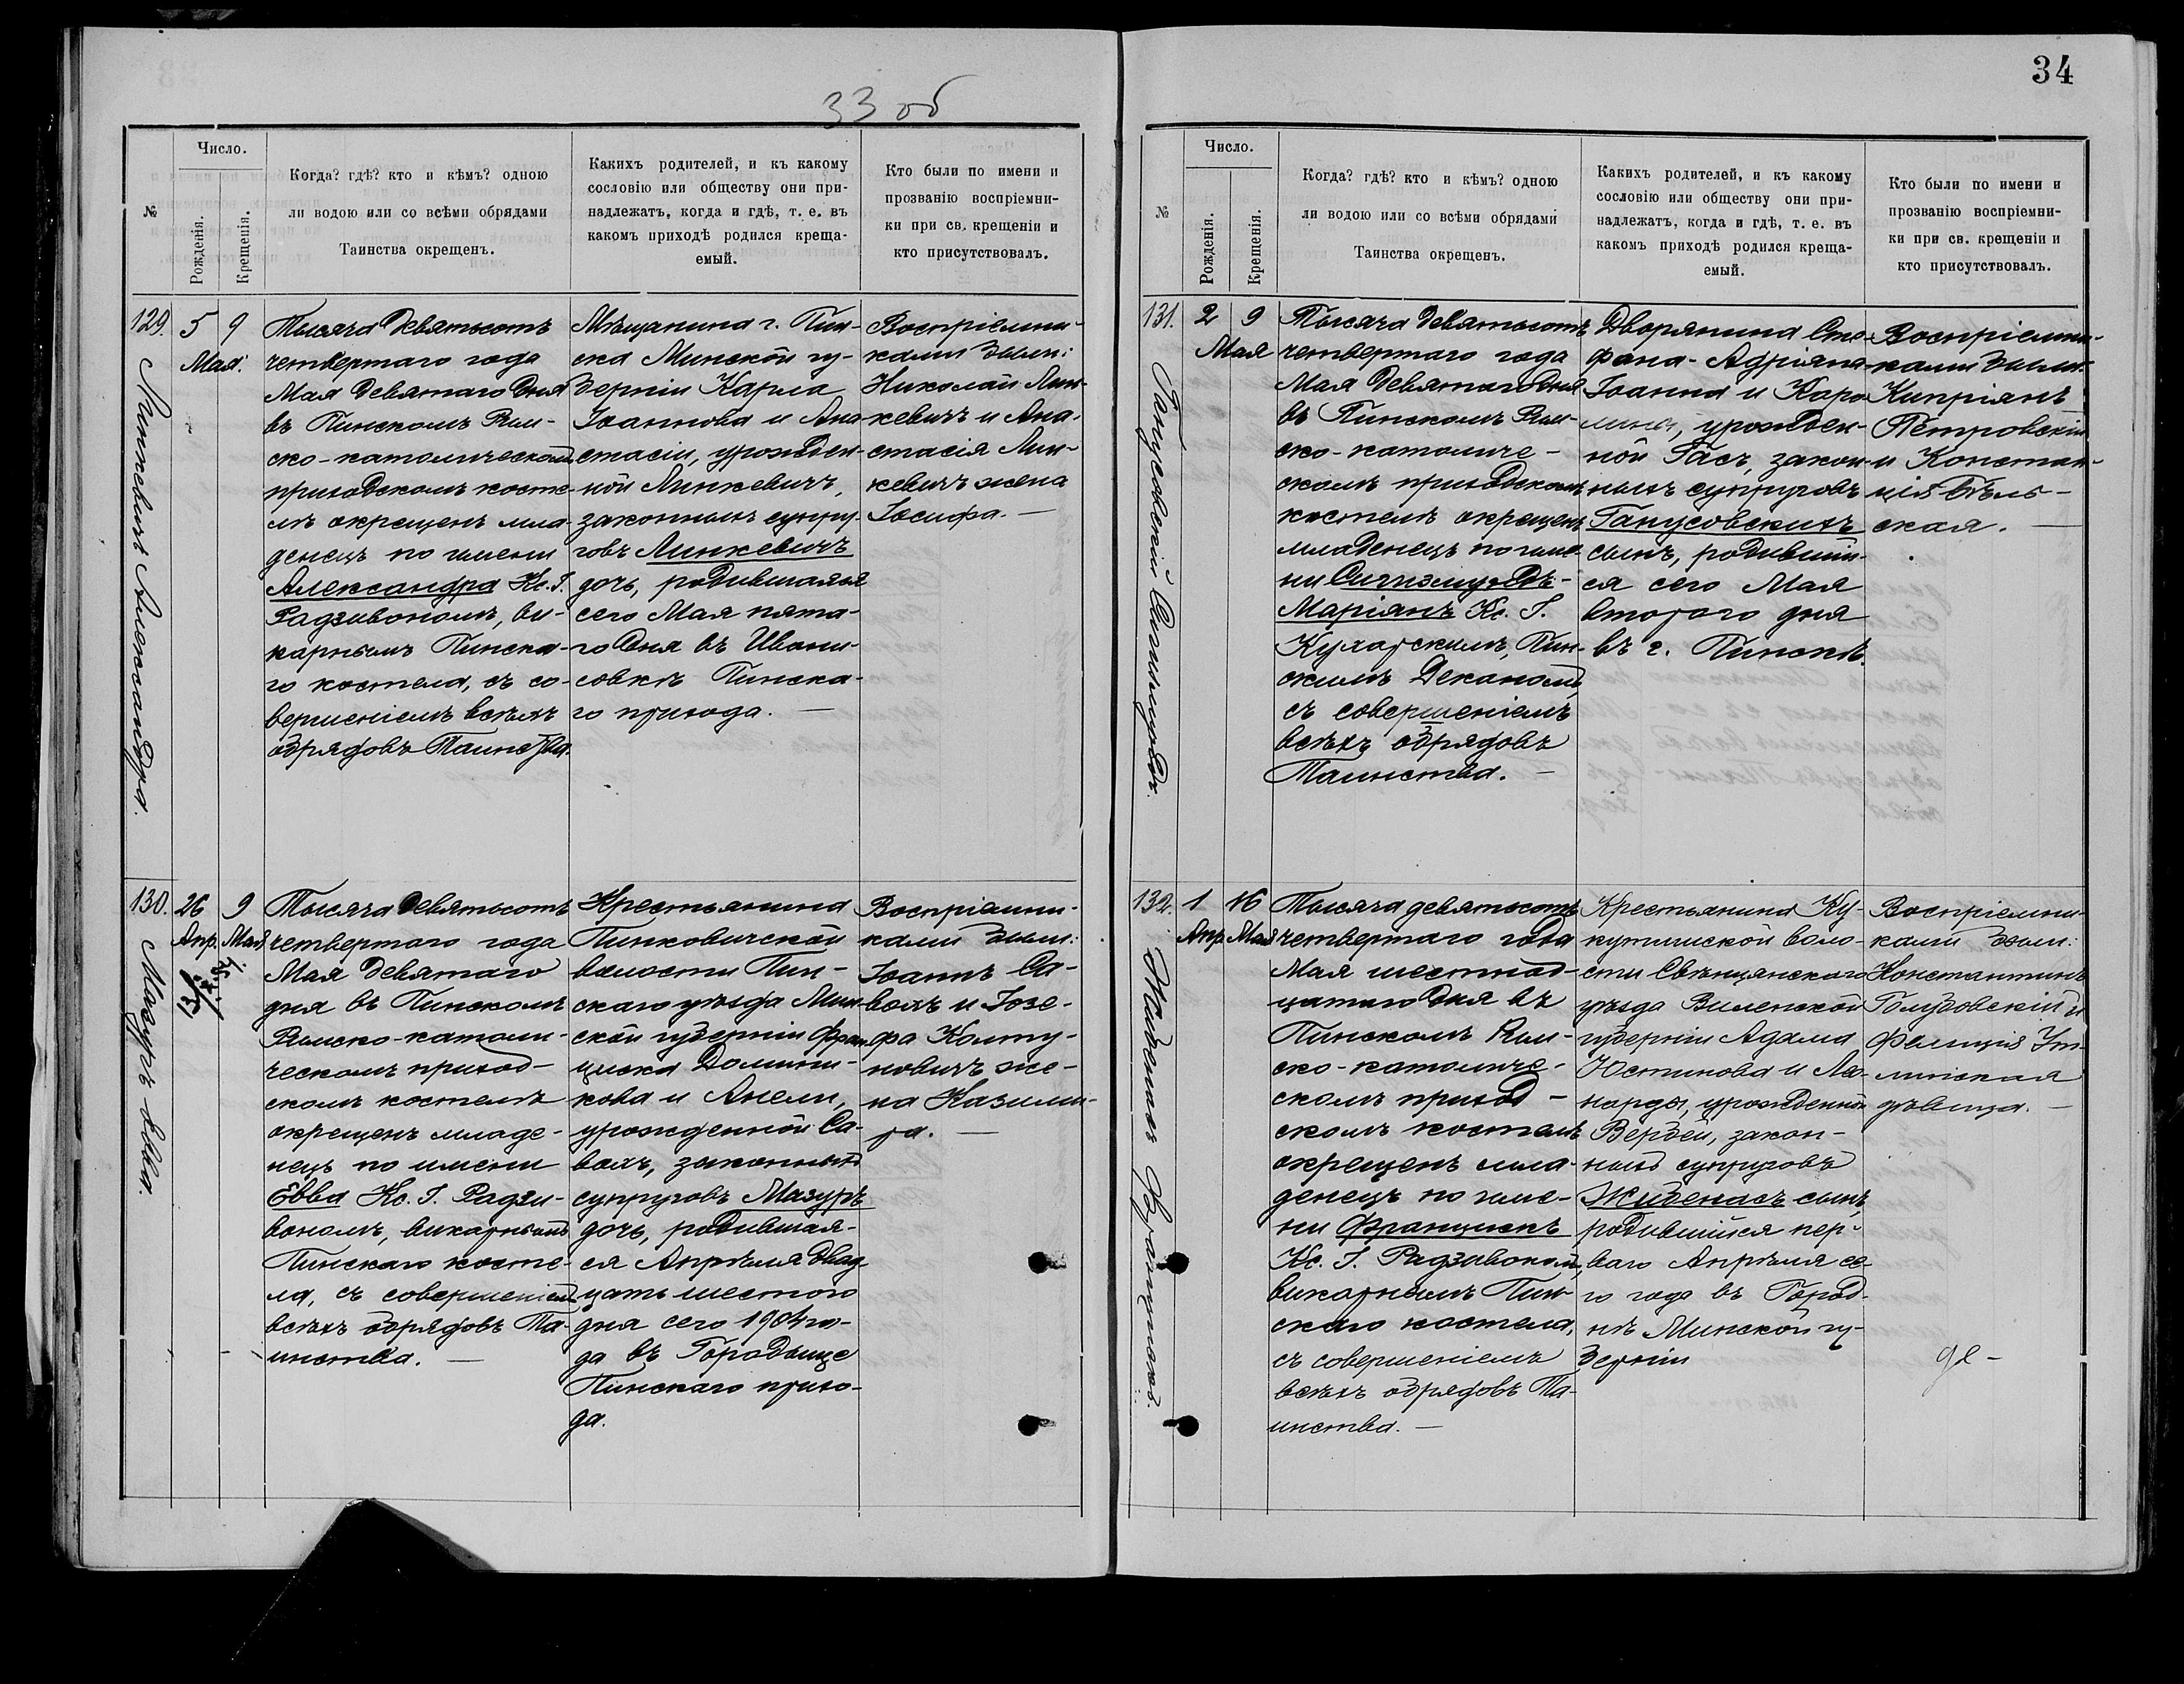 33 об
№
Число.
Рожденія.
Крещенія.
Когда? гдѣ? кто и кѣмъ? одною
ли водою или со всѣми обрядами
Таинства окрещенъ.
Какихъ родителей, и къ какому
сословію или обществу они при-
надлежатъ, когда и гдѣ, т. е. въ
какомъ приходѣ родился креща-
емый.
Кто были по имени и
прозванію воспріемни-
ки при св. крещеніи и
кто присутствовалъ.
129.
Линкевичъ Александра.
5
Мая.
9
Тысяча девятьсотъ
четвертаго года
Мая девятаго дня
въ Пинскомъ Рим-
ско-католическомъ
приходскомъ косте-
лѣ окрещенъ мла-
денецъ по имени
Александра Кс. І.
Радзивономъ, ви-
карнымъ Пинска-
го костела, съ со-
вершеніемъ всѣхъ
обрядовъ Таинства.
Мѣщанина г. Пин-
ска Минской гу-
берніи Карла
Іоаннова и Ана-
стасіи, урожден-
ной Линкевичъ,
законныхъ супру-
говъ Линкевичъ
дочь, родившаяся
сего Мая пята-
го дня въ Ивани-
совкѣ Пинска-
го прихода. —
Воспріемни-
ками были:
Николай Лин-
кевичъ и Ана-
стасія Лин-
кевичъ жена
Іосифа. —
130.
Мазуръ Евва.
26
Апр.
9
Мая
Тысяча девятьсотъ
четвертаго года
Мая девятаго
дня въ Пинскомъ
Римско-католи-
ческомъ приход-
скомъ костелѣ
окрещенъ младе-
нецъ по имени
Евва Кс. І. Радзи-
вономъ, викарнымъ
Пинскаго косте-
ла, съ совершеніемъ
всѣхъ обрядовъ Та-
инства. —
Крестьянина
Пинковичской
волости Пин-
скаго уѣзда Мин-
ской губерніи Фран-
циска Домини-
кова и Анели,
урожденной Са-
вахъ, законныхъ
супруговъ Мазуръ
дочь, родившая-
ся Апрѣля двад-
цать шестого
дня сего 1904 го-
да въ Городыще
Пинскаго прихо-
да.
Воспріемни-
ками были:
Іоаннъ Са-
вахъ и Іозе-
фа Колту-
новичъ же-
на Казими-
ра. —
34
№
Число.
Рожденія.
Крещенія.
Когда? гдѣ? кто и кѣмъ? одною
ли водою или со всѣми обрядами
Таинства окрещенъ.
Какихъ родителей, и къ какому
сословію или обществу они при-
надлежатъ, когда и гдѣ, т. е. въ
какомъ приходѣ родился креща-
емый.
Кто были по имени и
прозванію воспріемни-
ки при св. крещеніи и
кто присутствовалъ.
131.
Ганусовскій Сигизмундъ.
2
9
Мая
Тысяча девятьсотъ
четвертаго года
Мая девятаго дня
въ Пинскомъ Рим-
ско-католиче-
скомъ приходскомъ
костелѣ окрещенъ
младенецъ по име-
ни Сигизмундъ-
Маріянъ Кс. І.
Кухарскимъ, Пин-
скимъ Деканомъ,
съ совершеніемъ
всѣхъ обрядовъ
Таинства. —
Дворянина Сте-
фана-Адріяна-
Іоанна и Каро-
лины, урожден-
ной Гасъ, закон-
ныхъ супруговъ
Ганусовскихъ
сынъ, родивший-
ся сего Мая
второго дня
въ г. Пинскѣ.
Воспріемни-
ками были:
Кипріянъ
Петровскій
и Констан-
ція Бѣль-
ская. —
132.
Жибенасъ Францискъ.
1
Апр.
16
Мая
Тысяча девятьсотъ
четвертаго года
Мая шестнад-
цатаго дня въ
Пинскомъ Рим-
ско-католиче-
скомъ приход-
скомъ костелѣ
окрещенъ мла-
денецъ по име-
ни Францискъ
Кс. І. Радзивономъ,
викарнымъ Пин-
скаго костела,
съ совершеніемъ
всѣхъ обрядовъ Та-
инства. —
Крестьянина Ку-
кутишской воло-
сти Свѣнцянскаго
уѣзда Виленской
губерніи Адама
Юстинова и Лео-
нарды, урожденной
Вербей, закон-
ныхъ супруговъ
Жибенасъ сынъ,
родившийся пер-
ваго Апрѣля се-
го года въ Город-
нѣ Минской гу-
берніи
Воспріемни-
ками были:
Константинъ
Голубовскій и
Фелиція
дѣвица. —